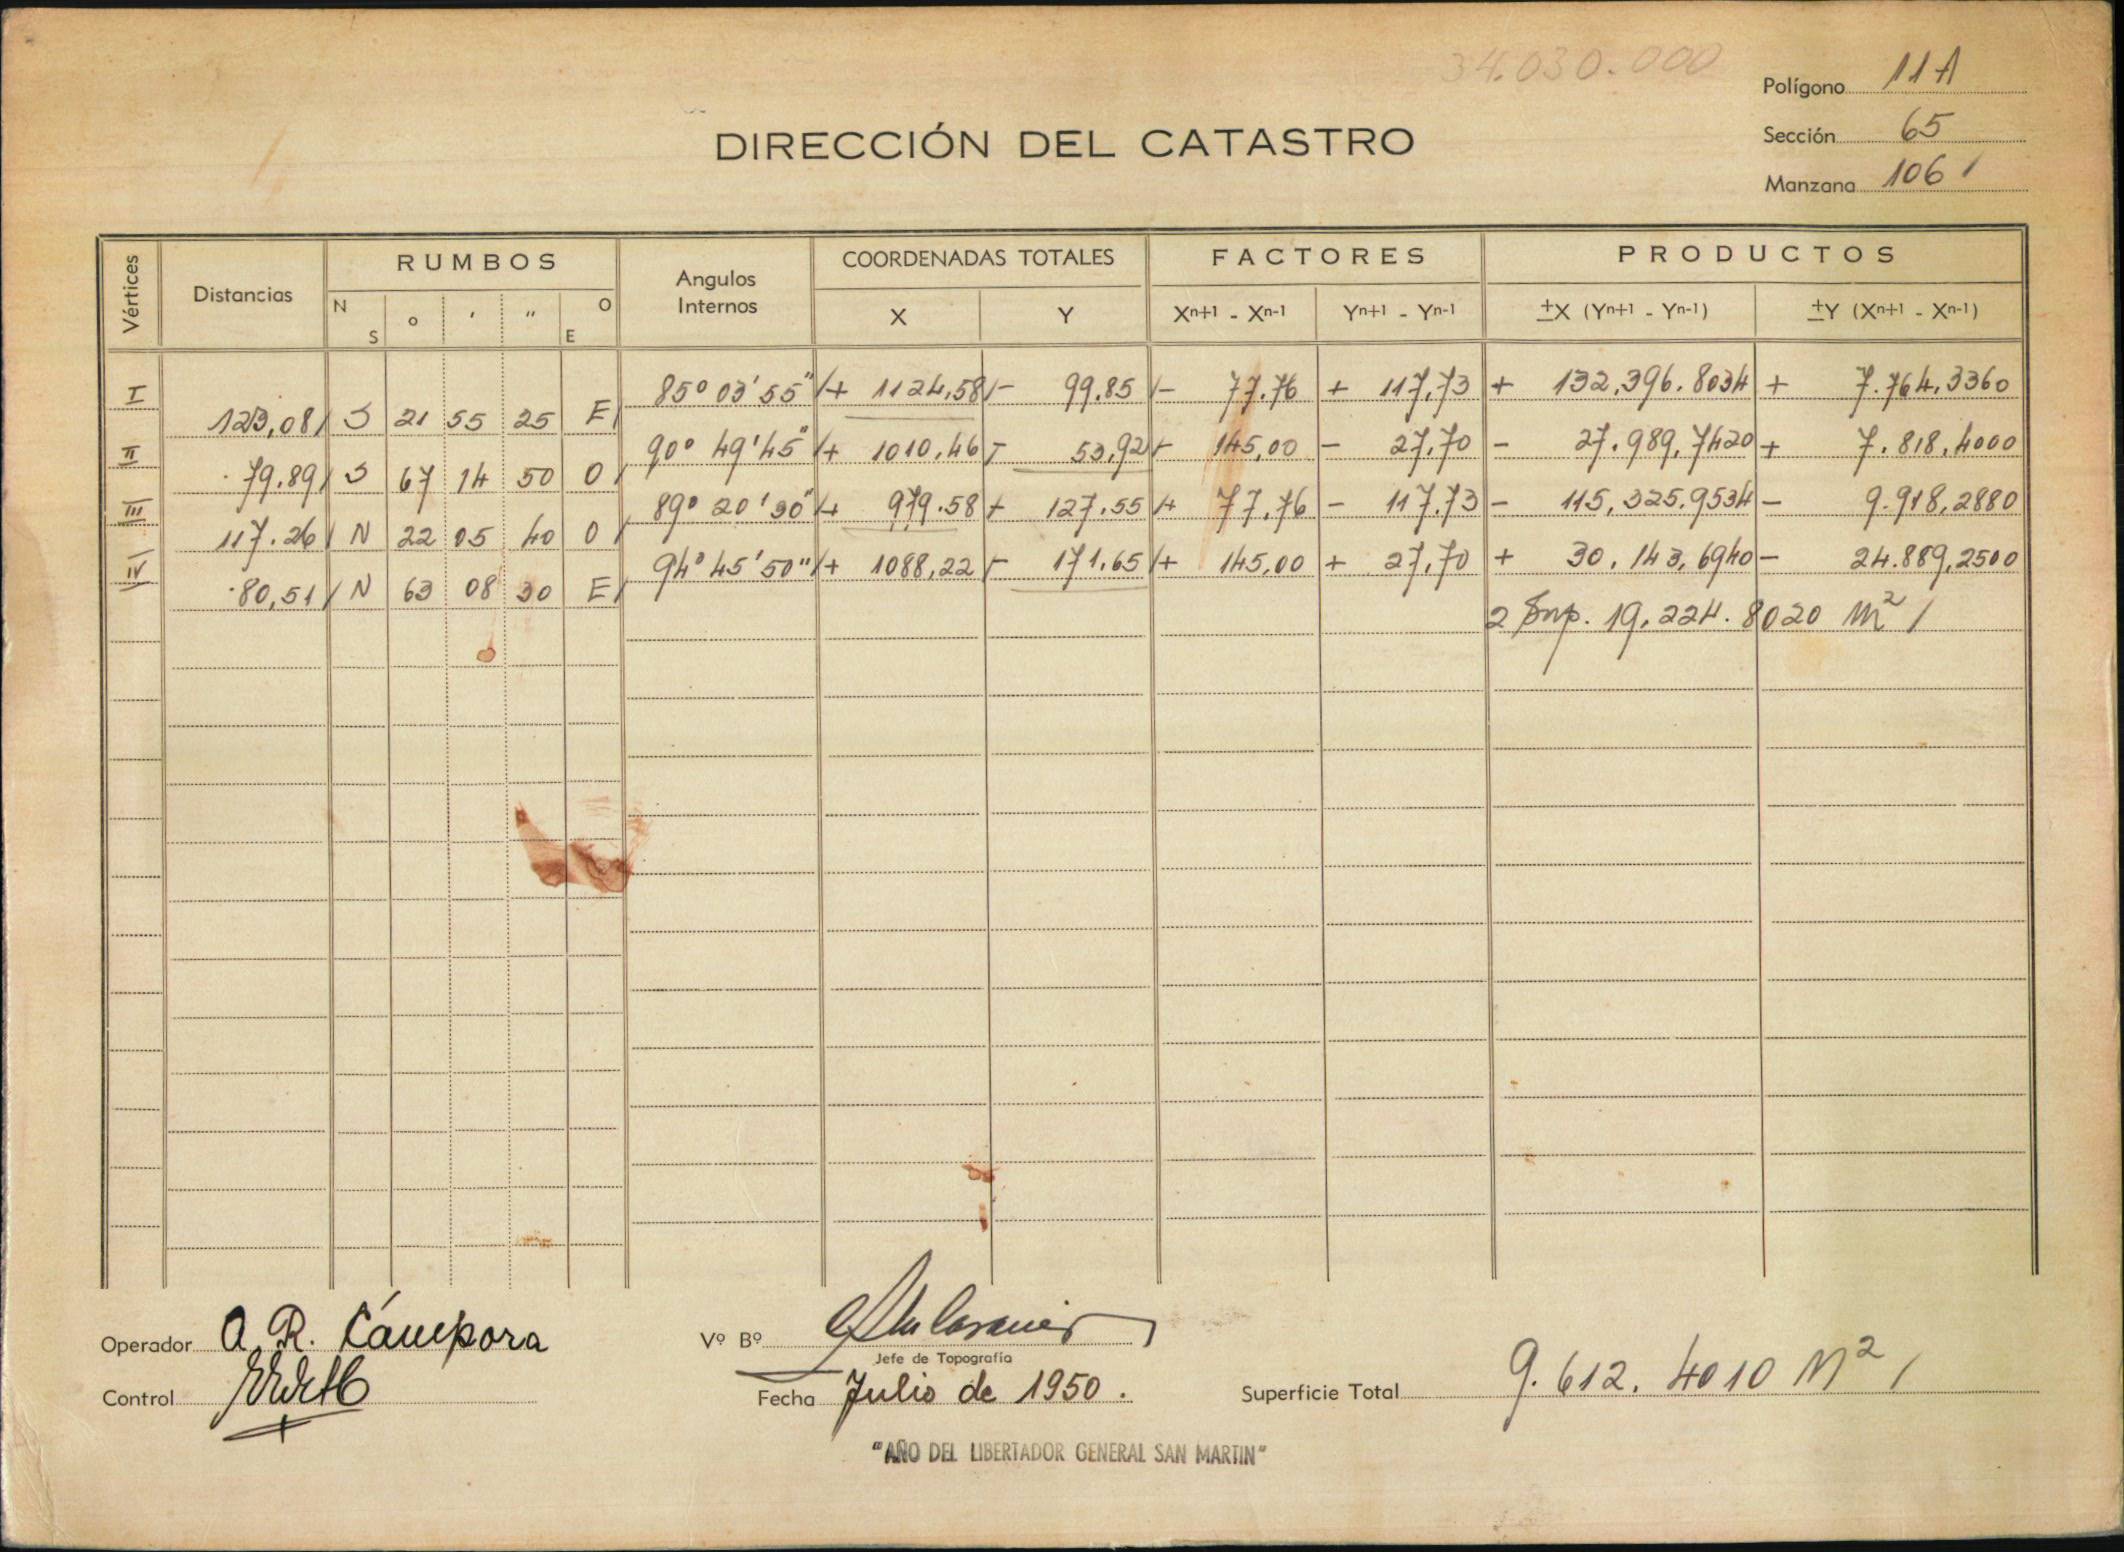 34.030.000
Polígono 11A
DIRECCIÓN DEL CATASTRO
Sección 65
Manzana 106
Vértices Distancias RUMBOS Angulos Internos COORDENADAS TOTALES FACTORES PRODUCTOS
N S o ' " O E X Y Xⁿ⁺¹ - Xⁿ⁻¹ Yⁿ⁺¹ - Yⁿ⁻¹ ±X (Yⁿ⁺¹ - Yⁿ⁻¹) ±Y (Xⁿ⁺¹ - Xⁿ⁻¹)
I 85° 03' 55" + 1124,58 - 99.85 - 77.76 + 117,73 + 132,396.8034 + 7.764,3360
123,08 S 21 55 25 E
II 90° 49' 45" + 1010,46 - 53,92 - 145,00 - 27,70 - 27.989,7420 + 7.818,4000
79.89 S 67 14 50 O
III 89° 20' 30" + 979.58 + 127.55 + 77,76 - 117.73 - 115,325.9534 - 9.918,2880
117.26 N 22 05 40 O
IV 94° 45' 50" + 1088,22 - 171,65 + 145,00 + 27,70 + 30.143,6940 - 24.889,2500
80,51 N 63 08 30 E
2 Sup. 19.224.8020 m²
Operador A. R. Cámpora
Vº Bº
Jefe de Topografía
Control
Fecha Julio de 1950.
Superficie Total 9.612.4010 M²
"AÑO DEL LIBERTADOR GENERAL SAN MARTIN"